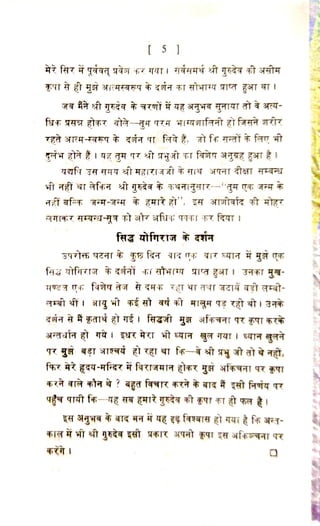 [ 5 ]
मेरे सिर में पूर्ववत् प्रवेश कर गया। सर्वसमर्थ श्री गुरुदेव की असीम
कृपा से ही मुझे आत्मस्वरूप के दर्शन का सौभाग्य प्राप्त हुआ था।
जब मैंने श्री गुरुदेव के चरणों में यह अनुभव सुनाया तो वे अत्य-
धिक प्रसन्न होकर बोले—तुम परम भाग्यशालिनी हो जिसने शरीर
रहते आत्म-स्वरूप के दर्शन पा लिये हैं, जो कि सन्तों के लिए भी
दुर्लभ होते हैं। यह तुम पर श्री प्रभुजी का विशेष अनुग्रह हुआ है।
यद्यपि उस समय श्री महाराजजी के साथ अपना दीक्षा सम्बन्ध
भी नहीं था लेकिन श्री गुरुदेव के कथनानुसार—"तुम एक जन्म के
नहीं बल्कि जन्म-जन्म के हमारे हो", इस आशीर्वाद की मोहर
लगाकर सम्बन्ध-सूत्र को और अधिक पक्का कर दिया।
सिद्ध योगिराज के दर्शन
उपरोक्त घटना के कुछ दिन बाद एक बार ध्यान में मुझे एक
सिद्ध योगिराज के दर्शनों का सौभाग्य प्राप्त हुआ। उनका मुख-
मण्डल एक विशेष तेज से दमक रहा था तथा जटायें बड़ी लम्बी-
लम्बी थीं। आयु भी कई सौ वर्ष की मालूम पड़ रही थी। उनके
दर्शन से मैं कृतार्थ हो गई। सिद्धजी मुझ अकिंचना पर कृपा करके
अन्तर्धान हो गये। इधर मेरा भी ध्यान खुल गया। ध्यान खुलने
पर मुझे बड़ा आश्चर्य हो रहा था कि—वे श्री प्रभु जी तो थे नहीं,
फिर मेरे हृदय-मन्दिर में विराजमान होकर मुझ अकिंचना पर कृपा
करने वाले कौन थे ? बहुत विचार करने के बाद मैं इसी निर्णय पर
पहुँच पायी कि—यह सब हमारे गुरुदेव की कृपा का ही फल है।
इस अनुभव के बाद मन में यह दृढ़ विश्वास हो गया है कि अन्त-
काल में भी श्री गुरुदेव इसी प्रकार अपनी कृपा इस अकिञ्चना पर
करेंगे।